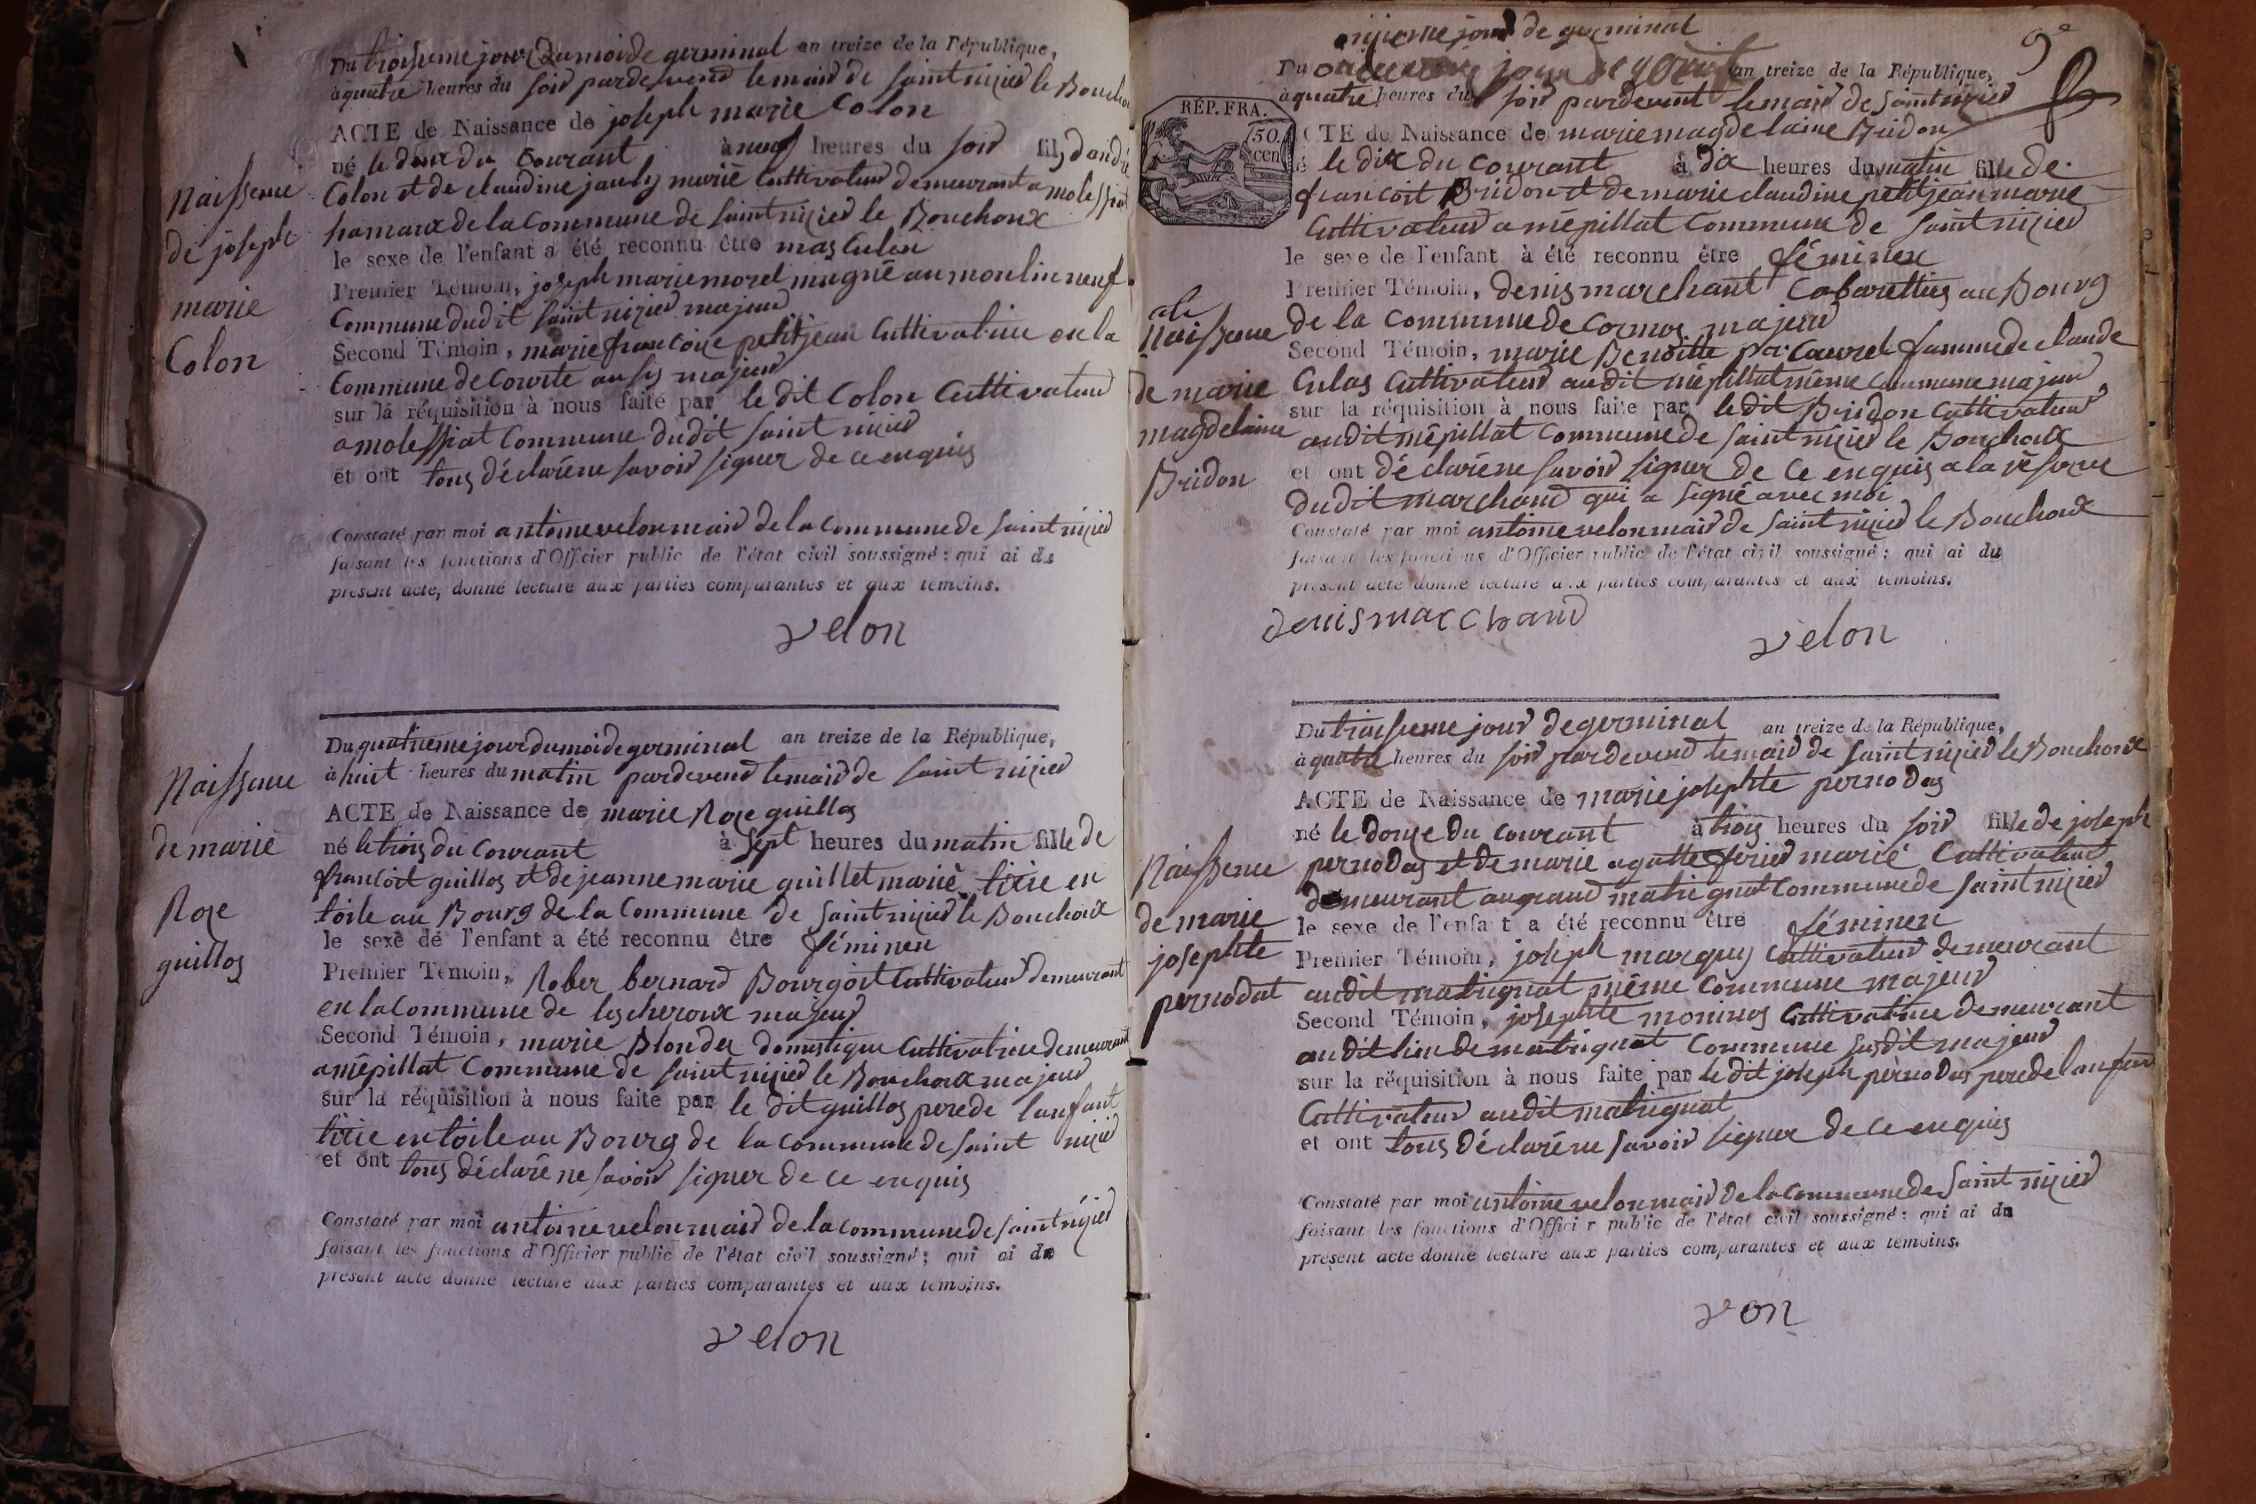 Du troisieme jour du moi de germinal an treize de la République,
à quatre heures du soir pardevend le maid de saint nizied le Bouchou
ACTE de Naissance de joseph marie Colon
né le deux du Courant à neuf heures du soir fils dandré
Naissence
Colon et de claudine jauly marié Cultivateur demeurant a molessiat
hamaux de la Commune de saint nizied le Bouchoux
de joseph
le sexe de l'enfant a été reconnu être masculen
marie
Premier Témoin, joseph marie morel mugné au moulin neuf
Commune dudit saint nizied majeur
Colon
Second Témoin, marie francoise petitjean Cultivatrice en la
Commune de Courte aussy majeur
sur la réquisition à nous faite par le dit Colon Cultivateur
a molessiat Commune dudit saint nizied
et ont tous déclaré ne savoir signer de ce enquis
Constaté par moi antoine velon maid de la Commune de saint nizied
faisant les fonctions d'Officier public de l'état civil soussigné: qui ai du
présent acte, donné lecture aux parties comparantes et aux témoins.
velon
Du quatrieme jour du moi de germinal an treize de la République,
Naissence
à huit heures du matin pardevend le maid de saint nizied
ACTE de Naissance de marie Roze guillos
de marie
né le trois du Courant à sept heures du matin fille de
francoit guillos et de jeanne marie guillet marié tixie en
Roze
toile au Bourg de la Commune de saint nizied le Bouchoux
guillos
le sexe de l'enfant a été reconnu être féminen
Premier Témoin, Rober bernard Bourgoit Cultivateur demeurant
en la Commune de lescheroux majeur
Second Témoin, marie Blondel domestique Cultivatrice demeurant
a mépillat Commune de saint nizied le Bouchoux majeur
sur la réquisition à nous faite par le dit guillos pere de lanfant
tixie en toile au Bourg de la Commune de saint nizied
et ont tous déclaré ne savoir signer de ce enquis
Constaté par moi antoine velon maid de la Commune de saint nizied
faisant les fonctions d'Officier public de l'état civil soussigné; qui ai du
présent acte donné lecture aux parties comparantes et aux témoins.
velon
9e
onzieme jour de germinal
Du an treize de la République,
à quatre heures du soir pardevent le maid de saint nizied
RÉP. FRA.
50.
cen
CTE de Naissance de marie magdelaine Bridon
né le dix du Courant à dix heures du matin fille de
francoit Bridon et de marie claudine petitjean marié
Cultivateur a mépillat Commune de saint nizied
le sexe de l'enfant à été reconnu être féminen
Premier Témoin, denis marchant Cabarettier au Bourg
Naissence
de la Commune de Cormos majeur
Second Témoin, marie Benoitte famme de claude
de marie
Culas Cultivateur audit mépillat même Commune majeur
magdelaine
sur la réquisition à nous faite par le dit Bridon Cultivateur
audit mépillat Commune de saint nizied le Bouchoux
Bridon
et ont déclaré ne savoir signer de ce enquis a la réserve
dudit marchand qui a signé avec moi
Constaté par moi antoine velon maid de saint nizied le Bouchoux
faisant les fonctions d'Officier public de l'état civil soussigné: qui ai du
présent acte donné lecture aux parties comparantes et aux témoins.
denis marchand
velon
Du troisieme jour de germinal an treize de la République,
à quatre heures du soir pardevend le maid de saint nizied le Bouchoux
ACTE de Naissance de marie josephte pernodas
né le douze du Courant à trois heures du soir fille de joseph
Naissence
pernodas et de marie agatte férier marié Cultivateur
demeurant au grand matrignat Commune de saint nizied
de marie
le sexe de l'enfant a été reconnu être féminen
josephte
Premier Témoin, joseph marquis Cultivateur demeurant
pernodat
audit matrignat même Commune majeur
Second Témoin, josephte monnos Cultivatrice demeurant
audit lieu de matrignat Commune susdit majeur
sur la réquisition à nous faite par le dit joseph pernodas pere de lanfan
Cultivateur audit matrignat
et ont tous déclaré ne savoir signer de ce enquis
Constaté par moi antoine velon maid de la Commune de saint nizied
faisant les fonctions d'Officier public de l'état civil soussigné: qui ai du
présent acte donné lecture aux parties comparantes et aux témoins.
von